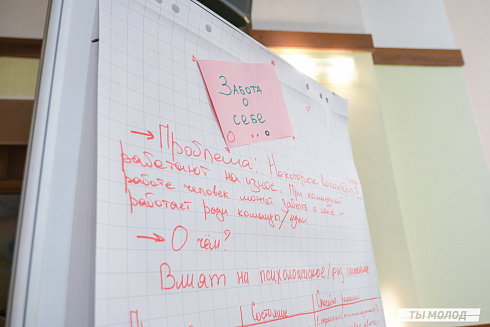 Забота
о
себе
→ Проблема: Некоторые
работают на износ. При командной
работе человек может забыть о себе
работает ради команды/идеи
→ О чём?
Влият на психологическое/физ. состояние
Состояние
ТЫ МОЛОД